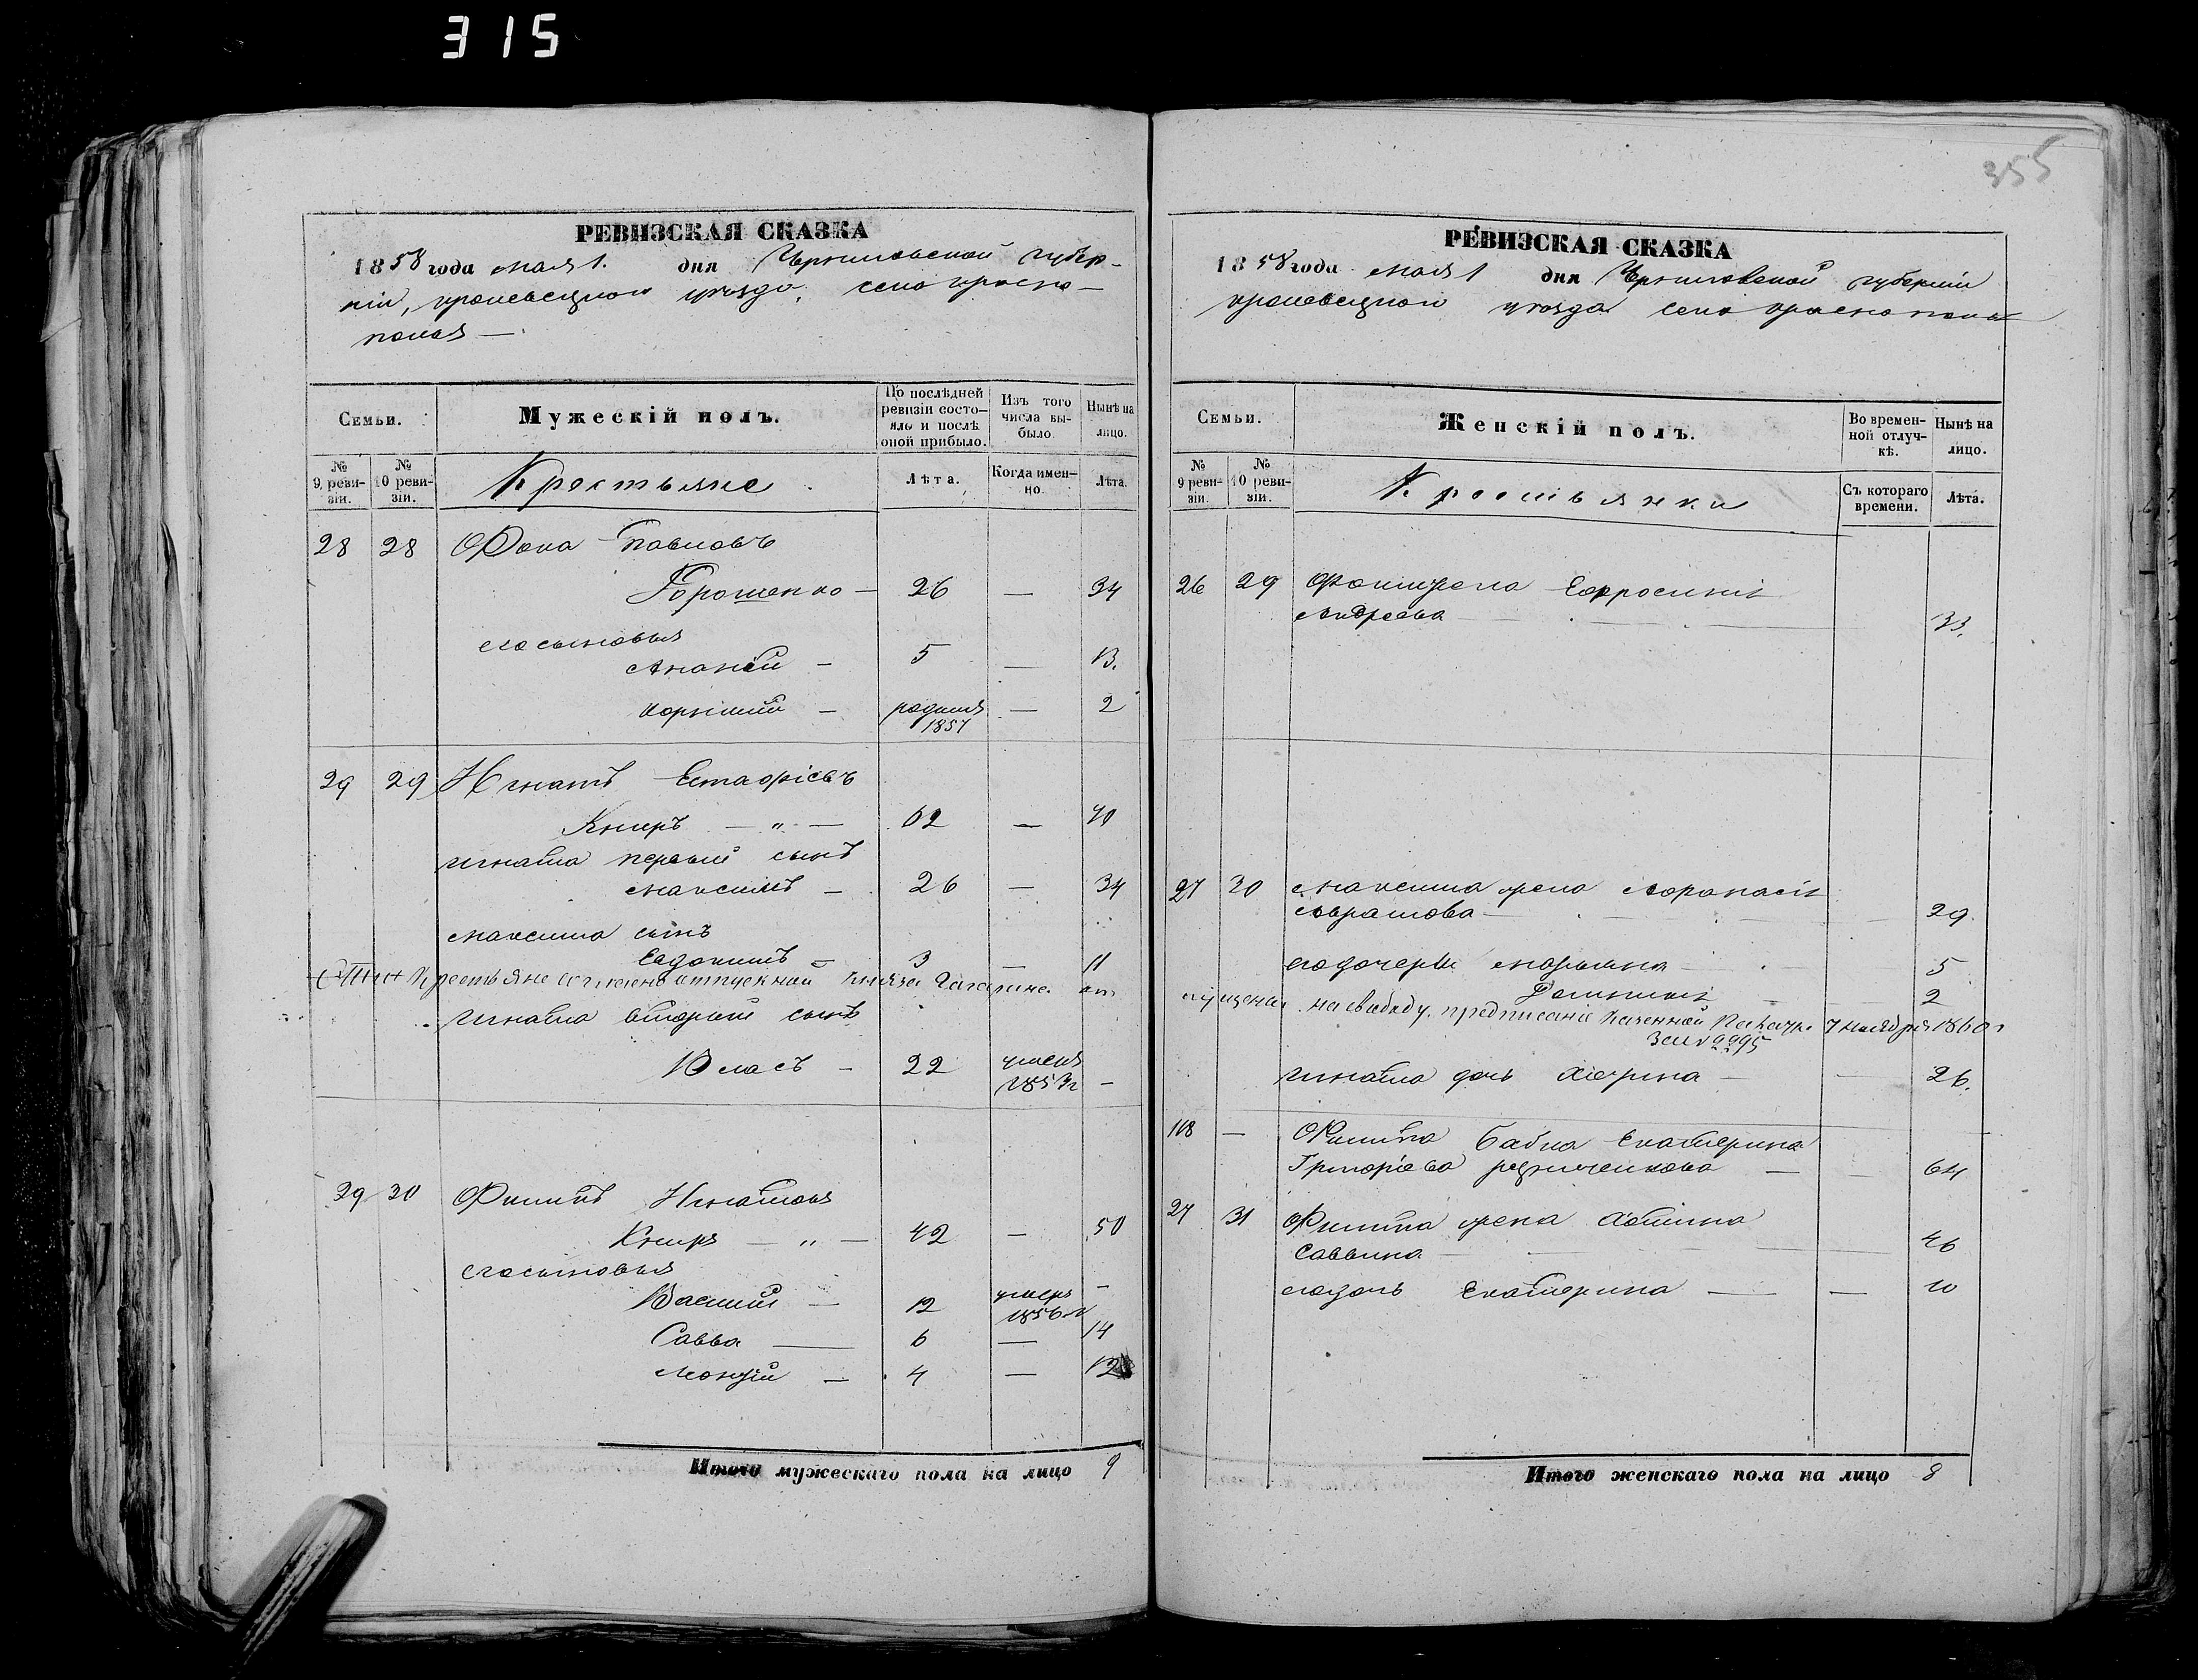 315
355
РЕВИЗСКАЯ СКАЗКА
1858 года мая 1. дня Черниговской губер-
ніи, кролевецкого уѣзда, села красно-
полья —
Семьи.
Мужескій полъ.
По послѣдней ревизіи состояло и послѣ оной прибыло.
Изъ того числа выбыло.
Нынѣ на лицо.
№ 9 ревизіи.
№ 10 ревизіи.
Крестьяне
Лѣта.
Когда именно.
Лѣта.
28 28 Фока Павловъ
Дорошенко — 26 — 34
его сыновья
Ананій — 5 — 13.
Корнилій — родился 1857 — 2
29 29 Игнатъ Естафіевъ
Книръ — „ — 62 — 70
Игната первый сынъ
Максимъ — 26 — 34
Максима сынъ
Евдокимъ — 3 — 11
Эти крестьяне согласно отпускной Князя Гагарина от
Игната вторый сынъ
Власъ — 22 умеръ 1853г —
29 30 Филипъ Игнатовъ
Книръ — „ — 42 — 50
его сыновья
Василий — 12 умеръ 1856г —
Савва — 6 — 14
4 — 12
Итого мужескаго пола на лицо 9
РЕВИЗСКАЯ СКАЗКА
1858 года мая 1 дня Черниговской губерніи
кролевецкого уѣзда села краснополья
Семьи.
Женскій полъ.
Во временной отлучкѣ.
Нынѣ на лицо.
№ 9 ревизіи.
№ 10 ревизіи.
Крестьянки
Съ котораго времени.
Лѣта.
26 29 Фоки жена Ефросинія
Андреева — 33.
27 30 Максима жена Афанасія
Абрамова — 29
его дочери Марьяна — 5
Домникія — 2
пущены на свободу. предписаніе Казенной Палаты 7 Ноября 1860г
За № 9995
Игната дочь — 26.
118 — Филипа бабка Екатерина
Григоріева — 64
27 31 Филипа жена
Саввина — 46
его дочь Екатерина — — 10
Итого женскаго пола на лицо 8